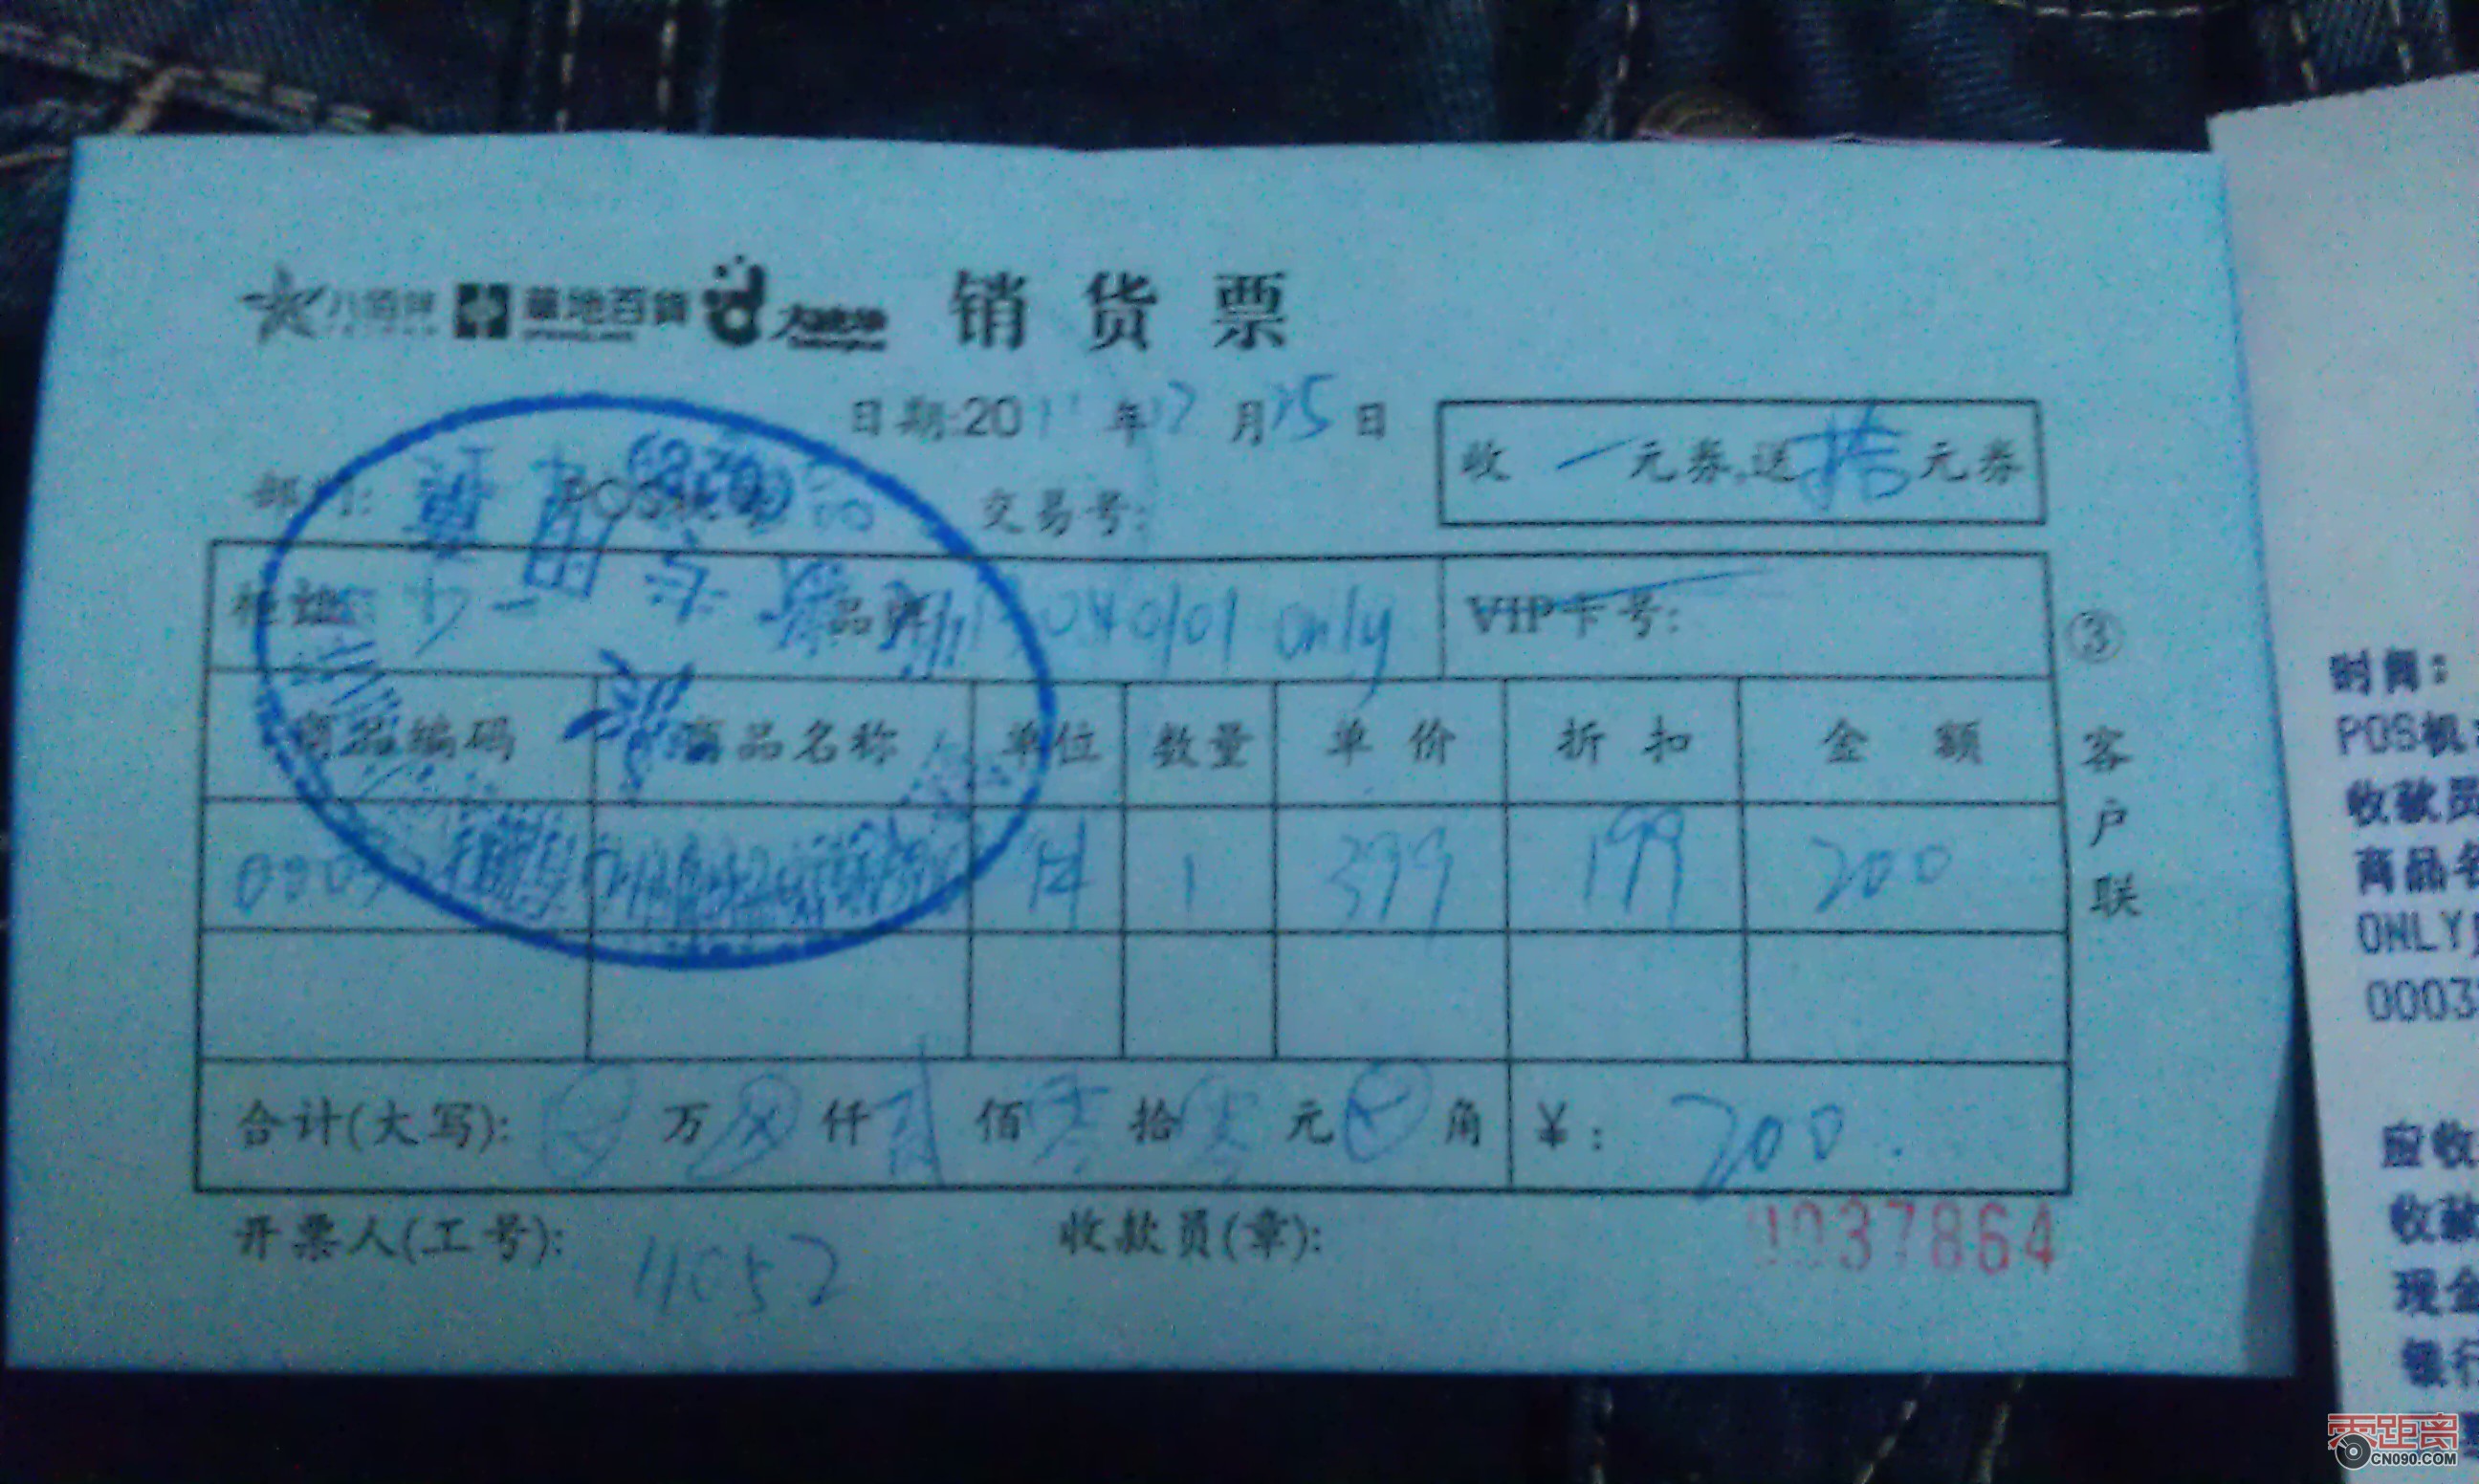 八佰伴 華地百貨 销货票
日期:2011年12月25日
收 一 元券,送 拾 元券
部门: 交易号:
柜组: 品牌 040101 only VIP卡号:
商品编码 商品名称 单位 数量 单价 折扣 金额
1 399 199 200
合计(大写): 万 仟 贰 佰 零 拾 零 元 角 ¥: 200.
开票人(工号): 11052 收款员(章):
0037864
③客户联
时间:
POS机:
收款员
商品名
ONLY
0003
应收
收款
现金
银行
零距离
CN090.COM